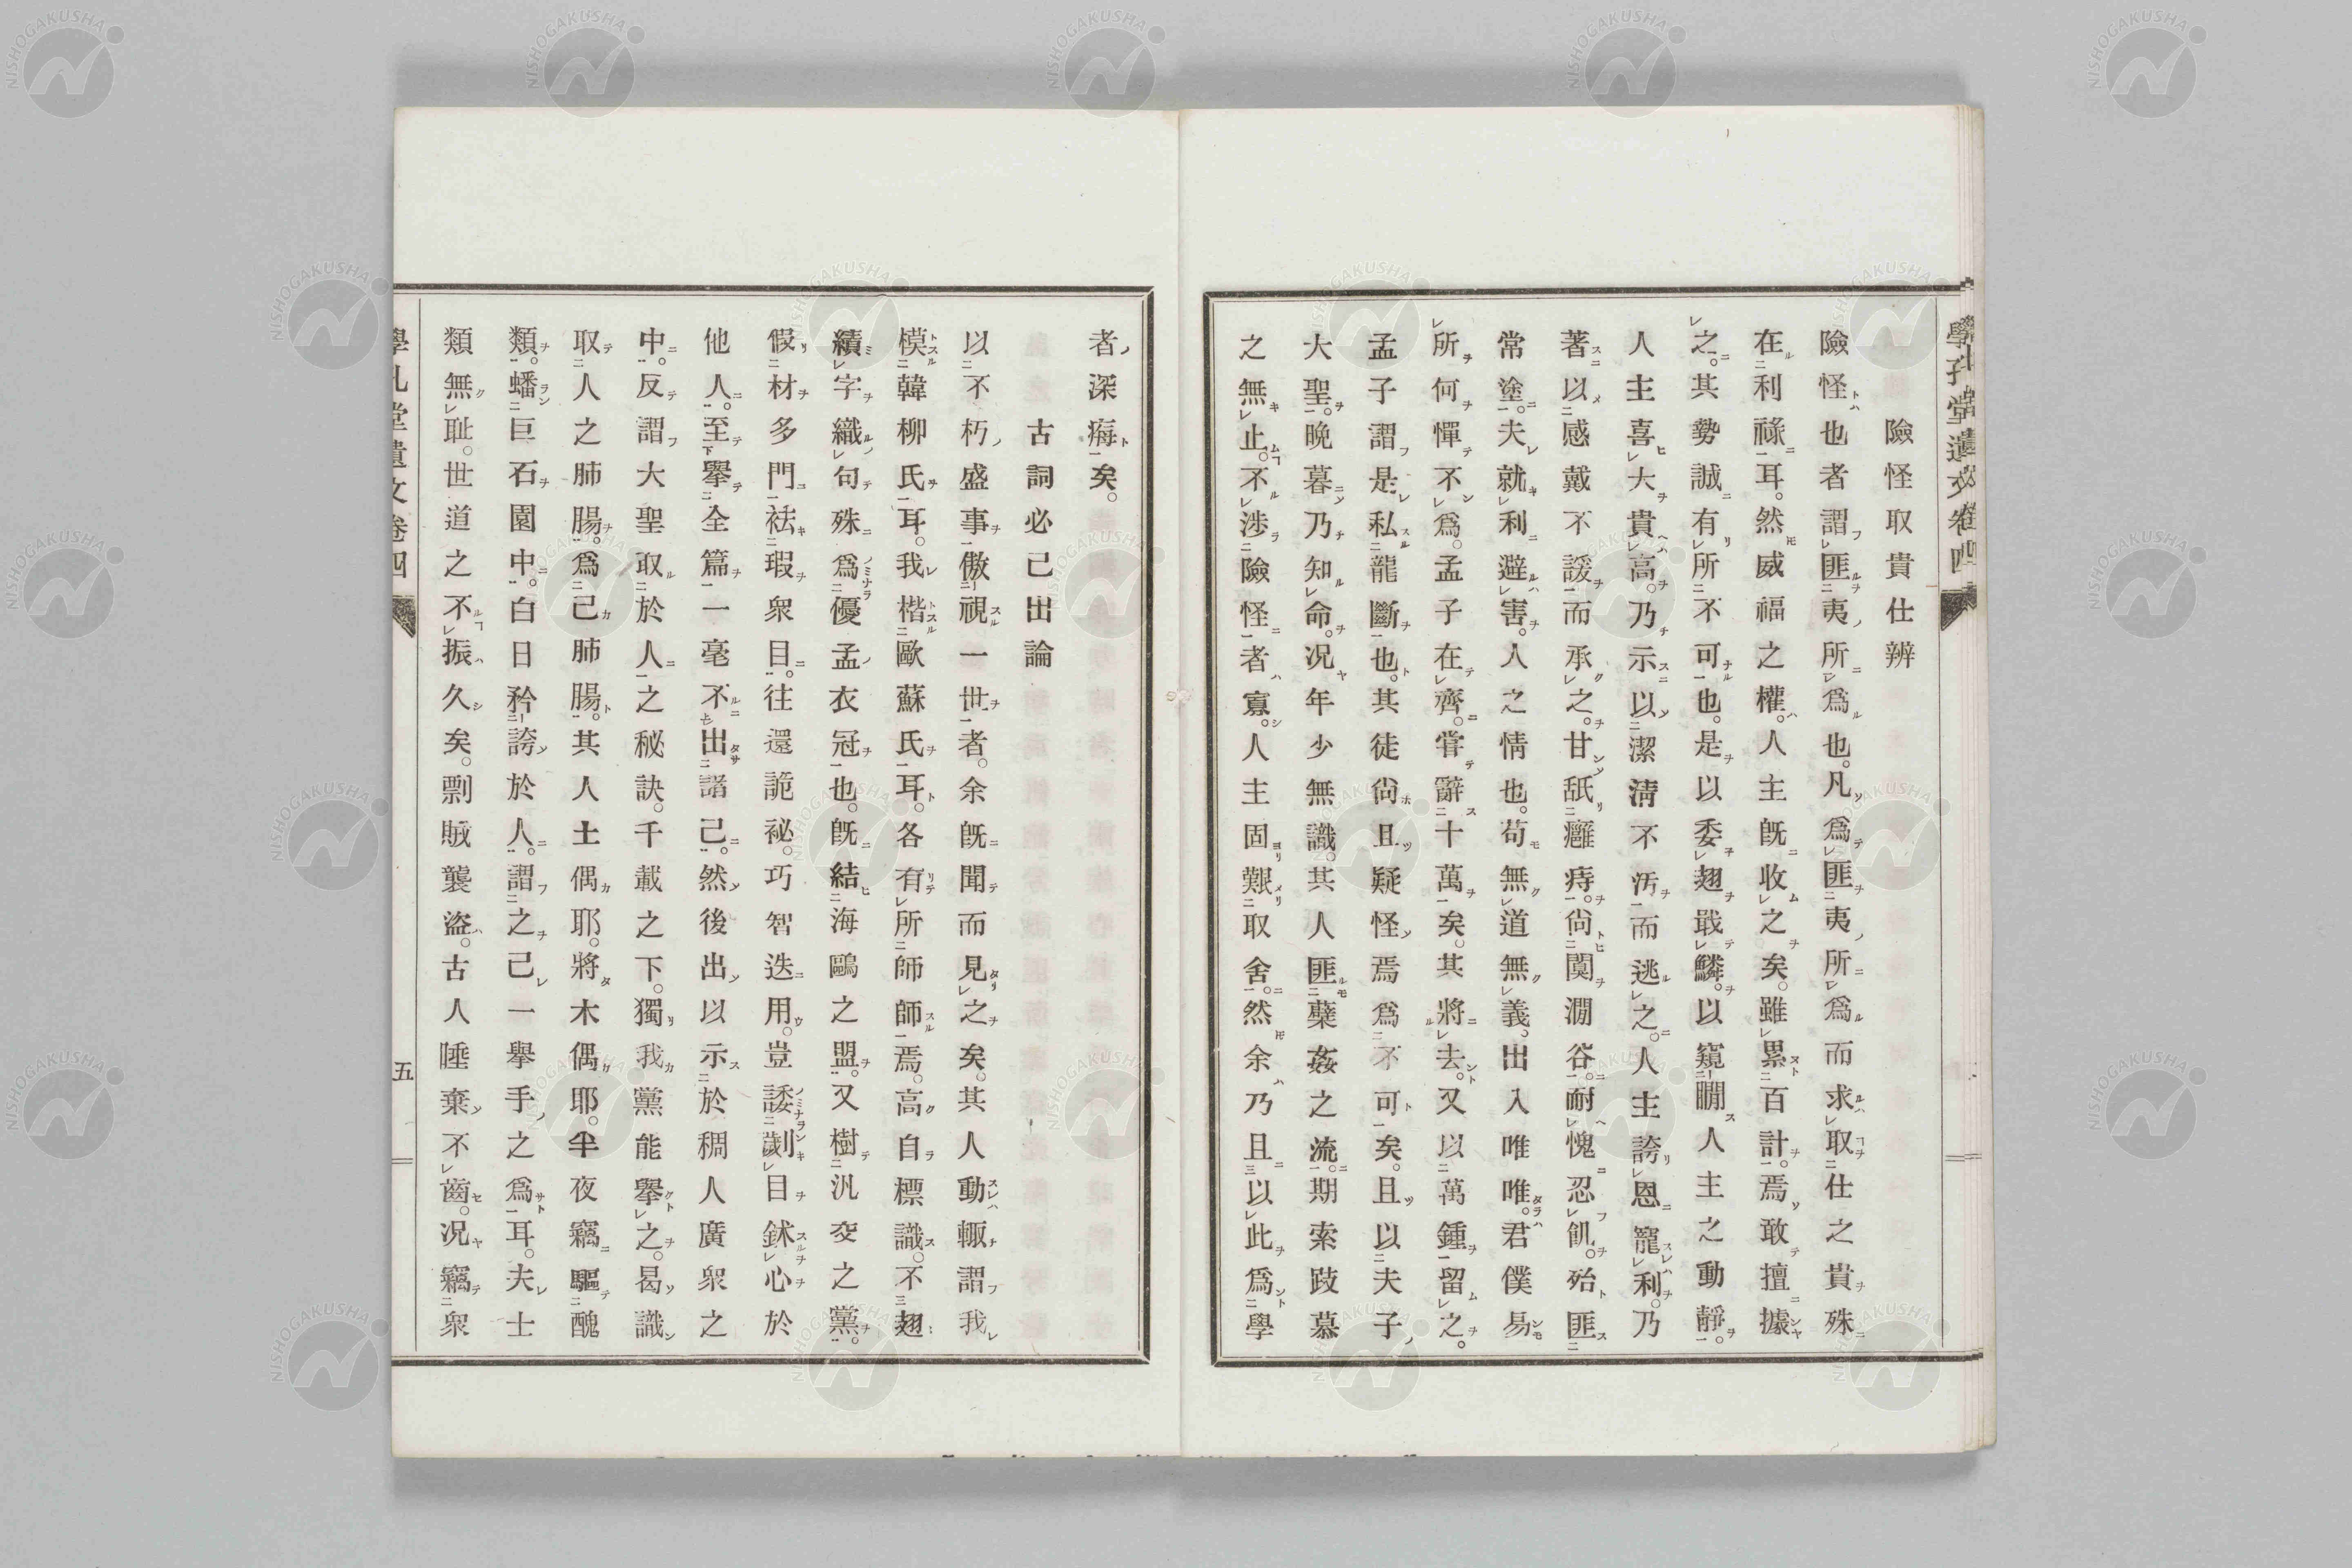 學孔堂遺文卷四
險怪取貴仕辨
險怪也者謂匪夷所爲也。凡爲匪夷所爲而求取仕之貴殊
在利祿耳。然威福之權。人主既收之矣。雖累百計。焉敢擅據
之。其勢誠有所不可也。是以委翅戢鱗。以窺瞯人主之動靜。
人主喜大貴高。乃示以潔淸不汚而逃之。人主誇恩寵利。乃
著以感戴不諼而承之。甘舐癰痔。尙闃澗谷。耐愧忍飢。殆匪
常塗。夫就利避害。人之情也。苟無道無義。出入唯唯。君僕易
所何憚不爲。孟子在齊。嘗辭十萬矣。其將去。又以萬鍾留之。
孟子謂是私龍斷也。其徒尙且疑怪焉爲不可矣。且以夫子
大聖。晚暮乃知命。况年少無識。其人匪蘖姦之流。期索跂慕
之無止。不涉險怪者寡。人主固艱取舍。然余乃且以此爲學
者深痗矣。
古詞必己出論
以不朽盛事傲視一世者。余既聞而見之矣。其人動輙謂我
模韓柳氏耳。我楷歐蘇氏耳。各有所師師焉。高自標識。不翅
續字織句殊爲優孟衣冠也。既結海鷗之盟。又樹汎交之黨。
假材多門祛瑕衆目。往還詭祕。巧智迭用。豈諉劌目鉥心於
他人。至擧全篇一毫不出諸己。然後出以示於稠人廣衆之
中。反謂大聖取於人之秘訣。千載之下。獨我黨能擧之。曷識
取人之肺腸。爲己肺腸。其人土偶耶。將木偶耶。半夜竊驅醜
類。蟠巨石園中。白日矜誇於人。謂之己一擧手之爲耳。夫士
類無耻。世道之不振久矣。剽賊襲盜。古人唾棄不齒。况竊衆
學孔堂遺文卷四
五